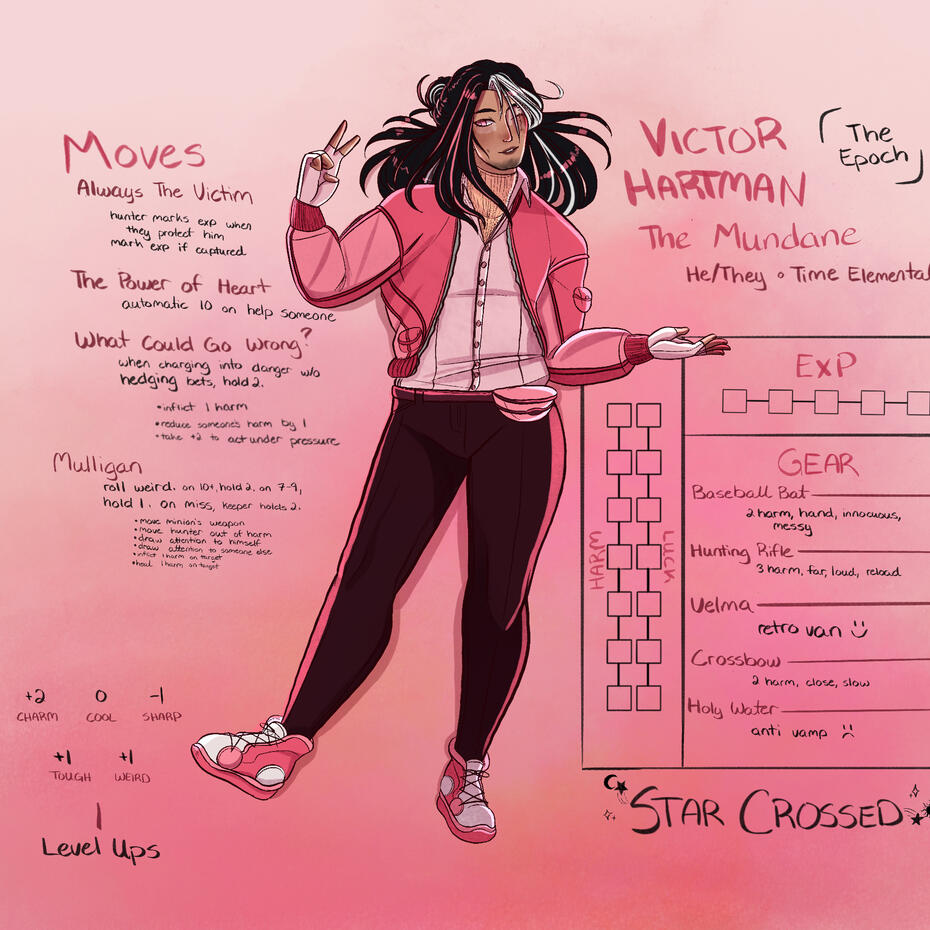 Moves
Always The Victim
hunter marks exp when
they protect him
mark exp if captured
The Power of Heart
automatic 10 on help someone
What Could Go Wrong?
when charging into danger w/o
hedging bets, hold 2.
• inflict 1 harm
• reduce someone's harm by 1
• take +2 to act under pressure
Mulligan
roll weird. on 10+, hold 2. on 7-9,
hold 1. on miss, keeper holds 2.
• move minion's weapon
• move hunter out of harm
• draw attention to himself
• draw attention to someone else
• inflict 1 harm on target
• heal 1 harm on target
+2 0 -1
CHARM COOL SHARP
+1 +1
TOUGH WEIRD
Level Ups
VICTOR
HARTMAN
The
Epoch
The Mundane
He/They • Time Elemental
HARM
LUCK
EXP
GEAR
Baseball Bat
2 harm, hand, innocuous,
messy
Hunting Rifle
3 harm, far, loud, reload
Velma
retro van :)
Crossbow
2 harm, close, slow
Holy Water
anti vamp :(
STAR CROSSED